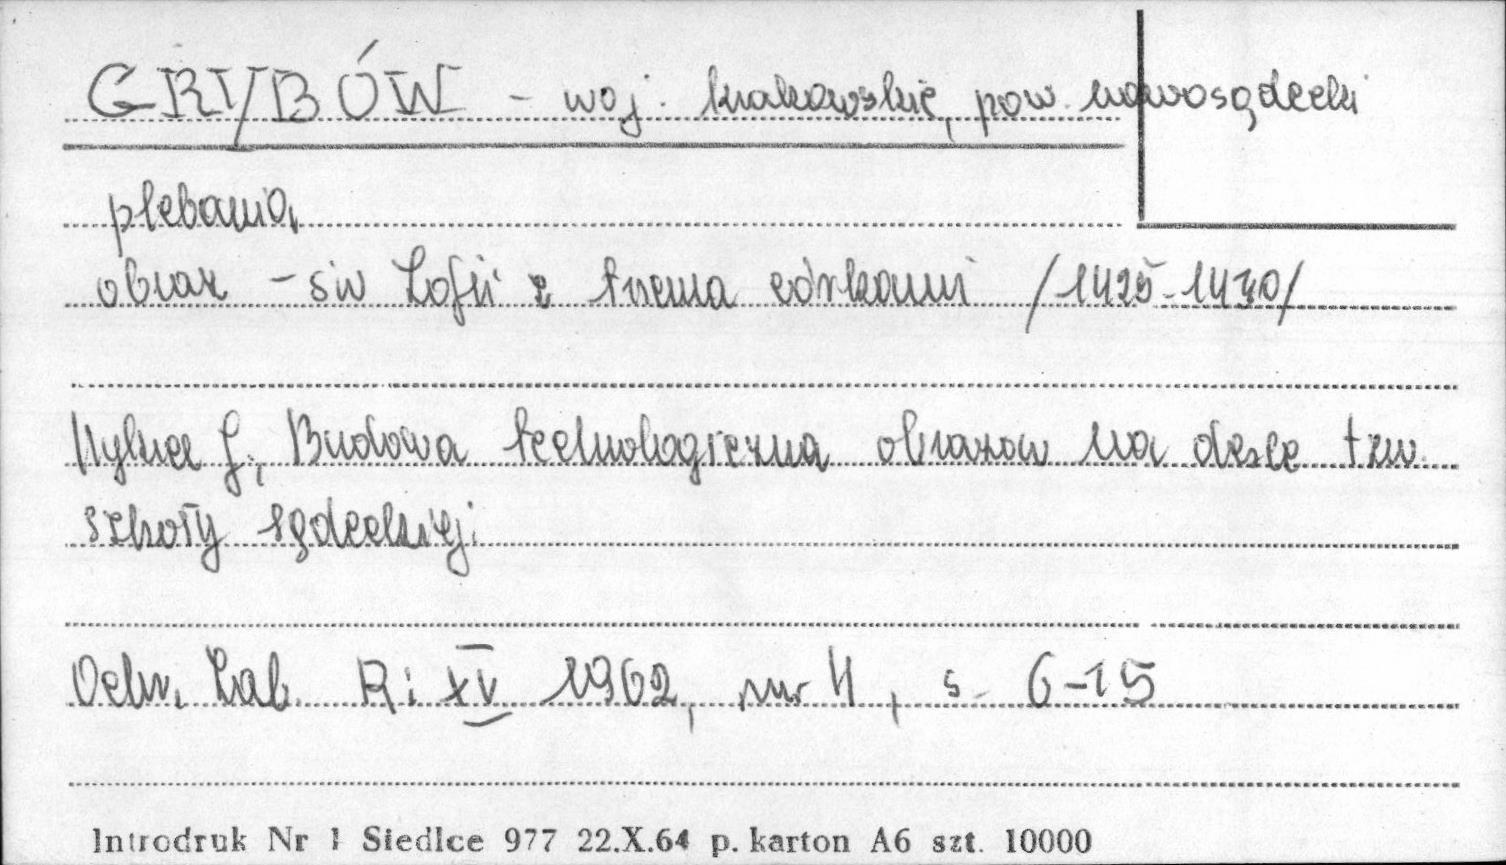 GRYBÓW - woj. krakowskie, pow. nowosądecki
plebania
obraz - św Zofii z trzema córkami /1425-1430/
J., Budowa technologiczna obrazów na desce tzw.
szkoły sądeckiej.
Ochr. Zab. R. XV 1962, nr 4, s. 6-15
Introdruk Nr 1 Siedlce 977 22.X.64 p. karton A6 szt. 10000